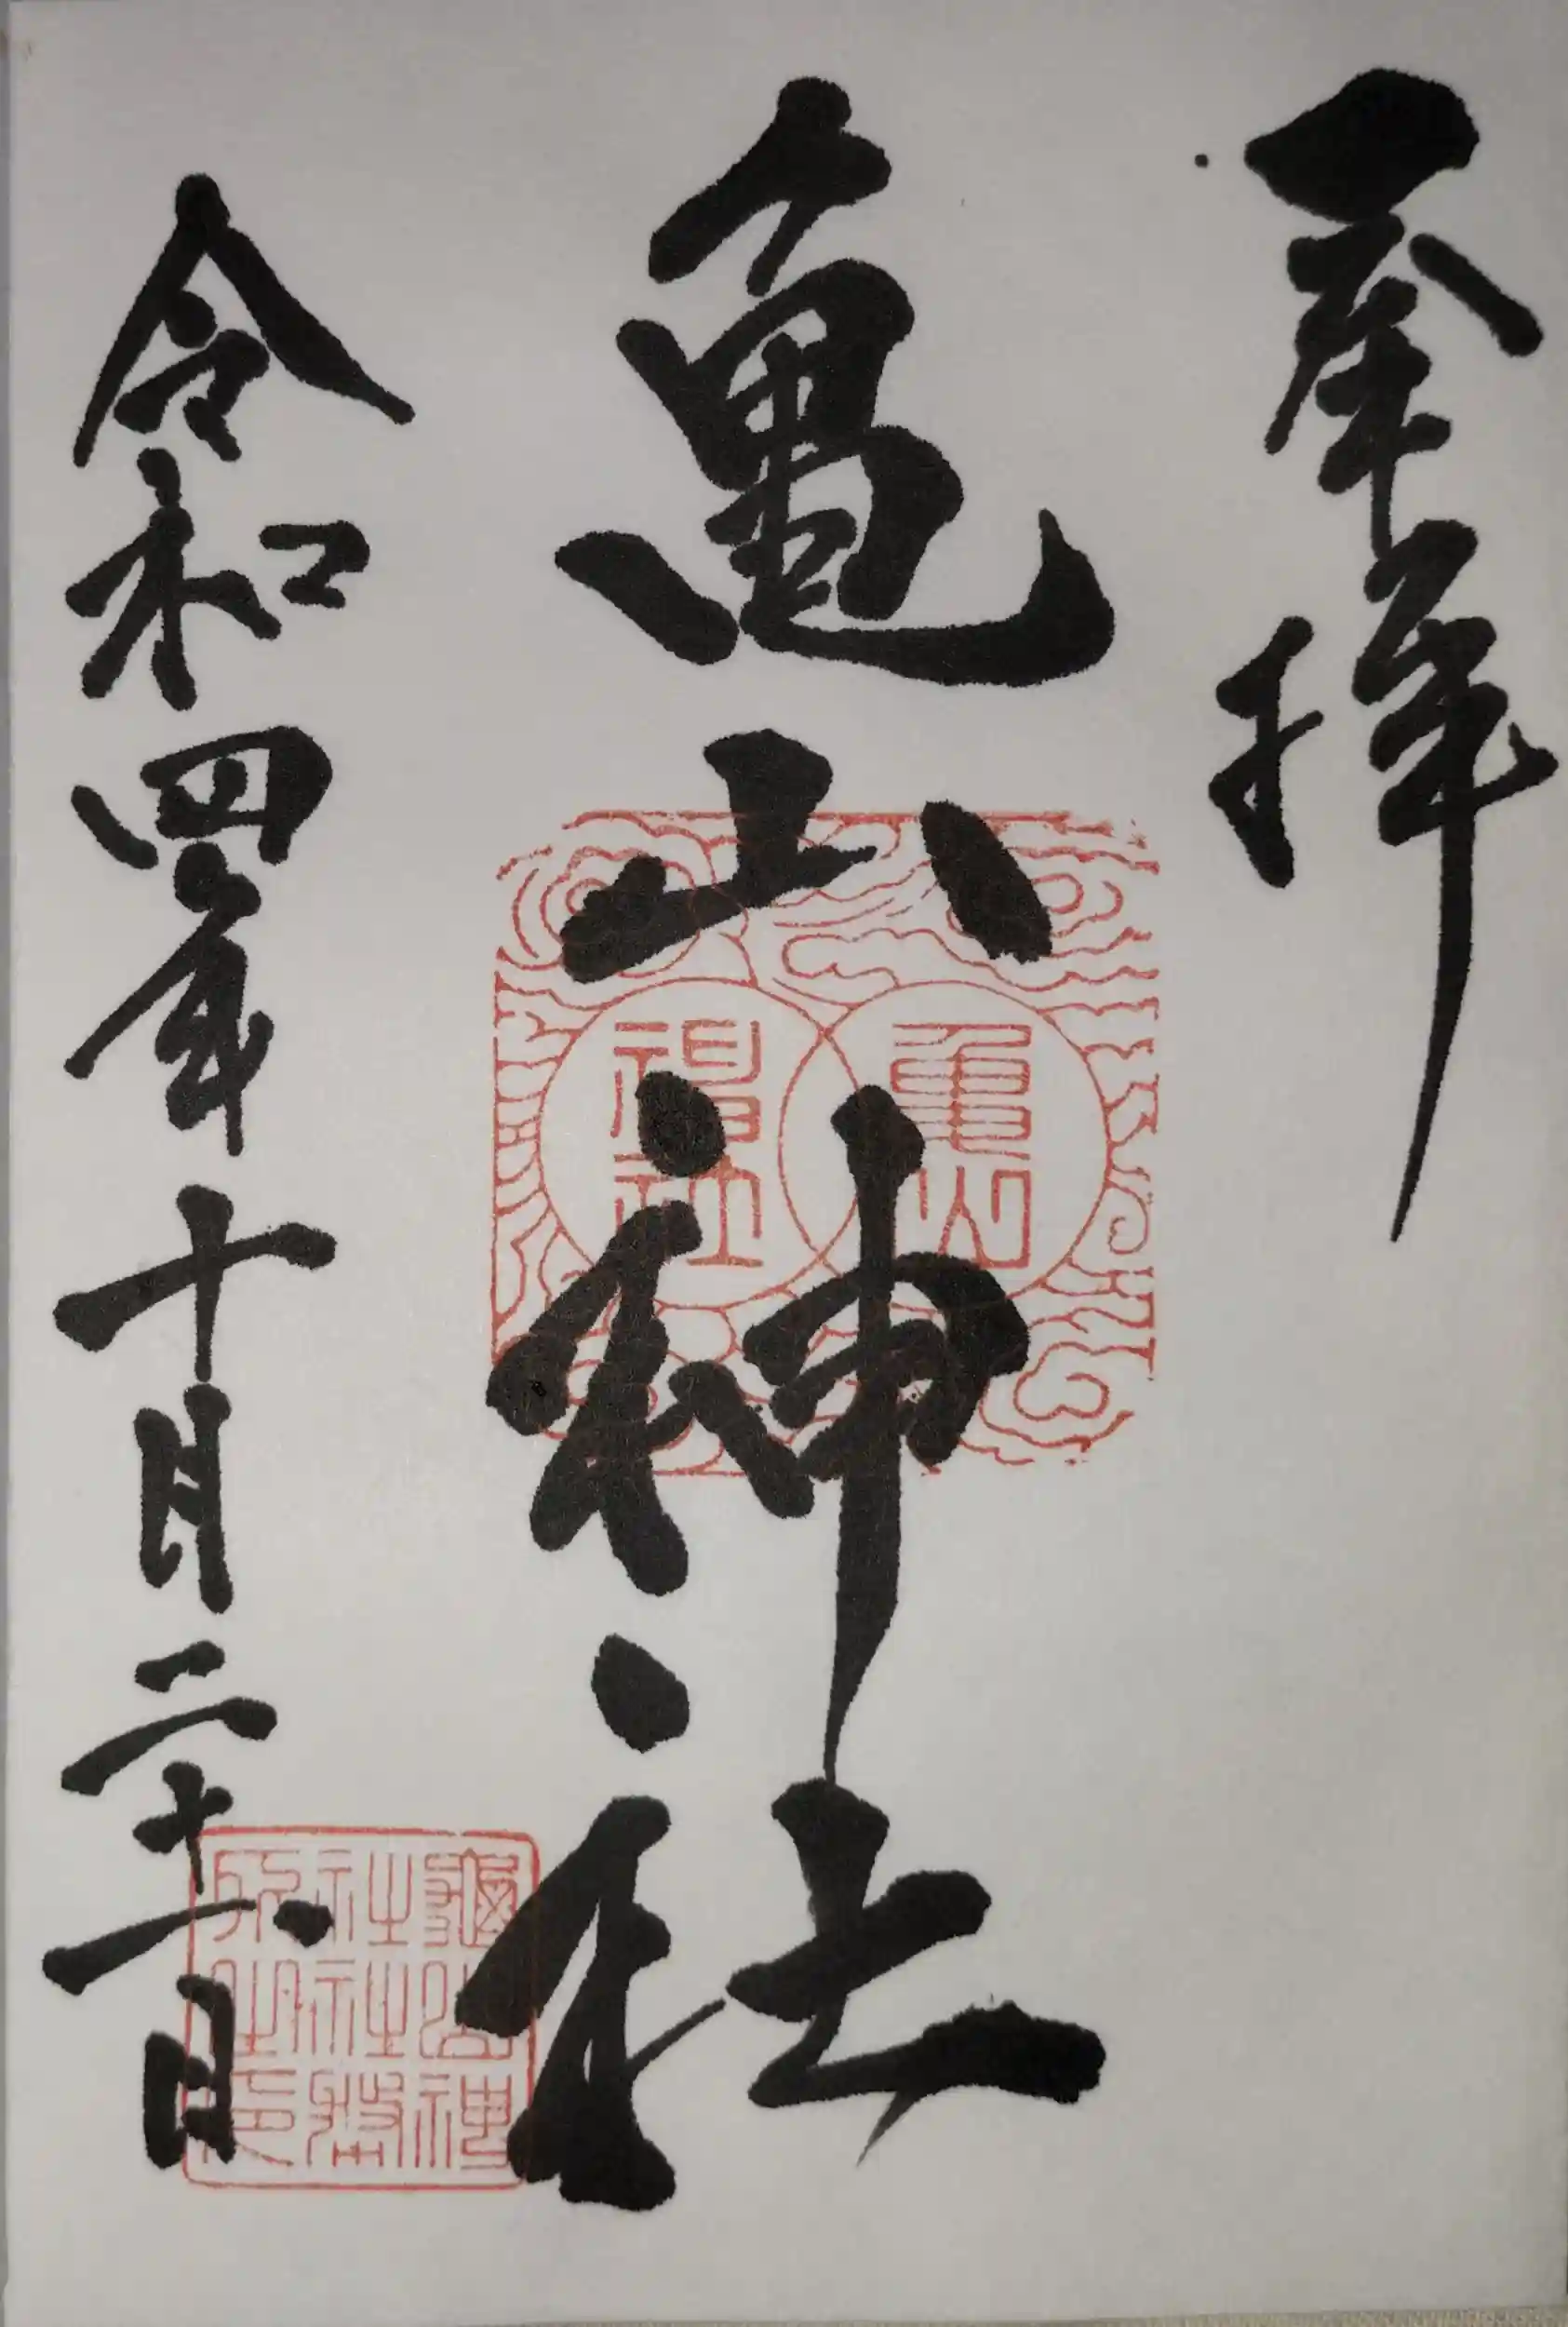 奉拝
亀山神社
令和四年十月二十一日
龜山神
社社務
所之印